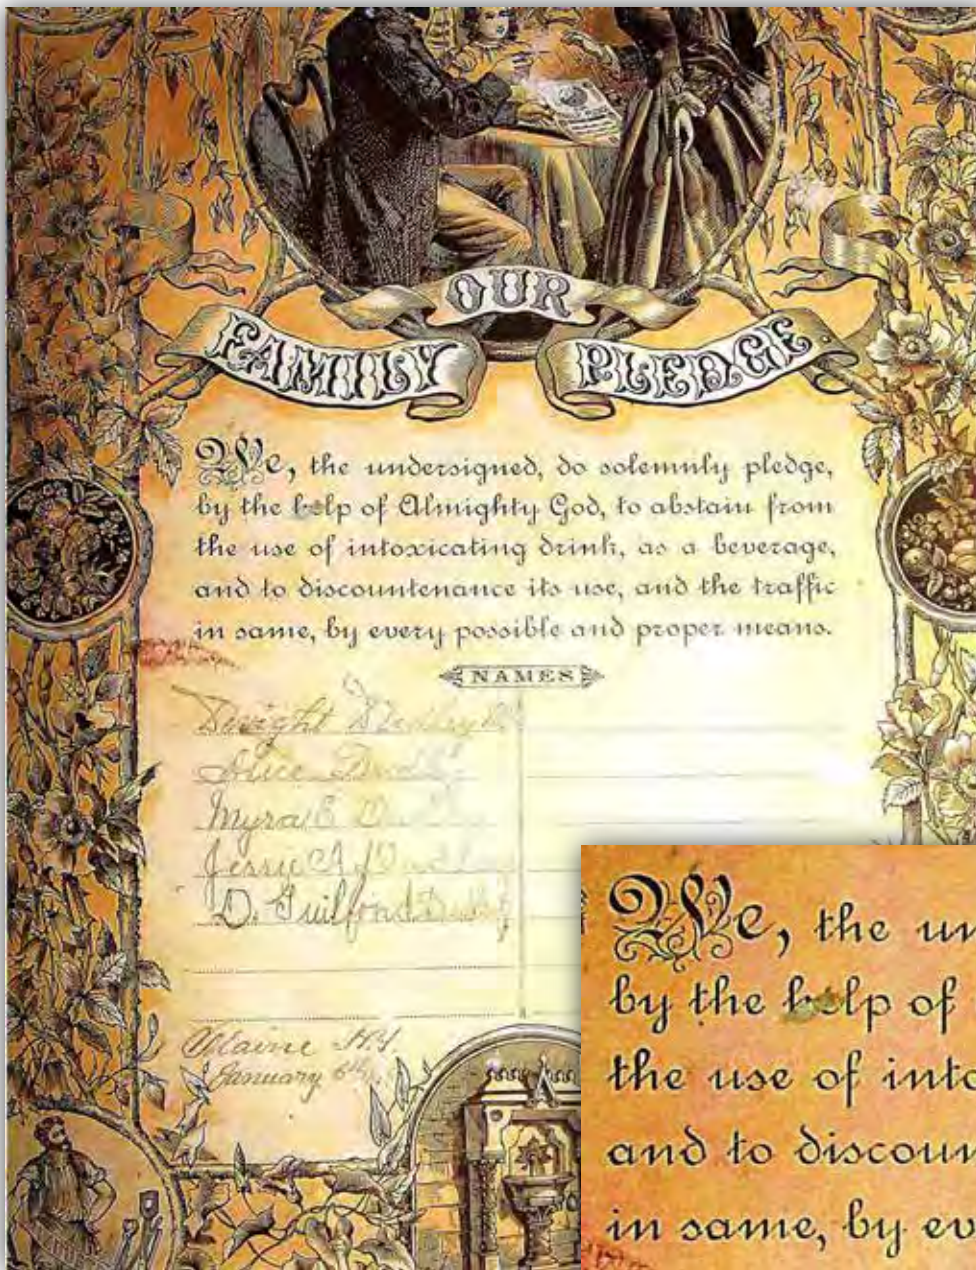 OUR
FAMILY PLEDGE
We, the undersigned, do solemnly pledge,
by the help of Almighty God, to abstain from
the use of intoxicating drink, as a beverage,
and to discountenance its use, and the traffic
in same, by every possible and proper means.
NAMES
Dwight
Alice
Myra E
Jessie A
D. Guilford
January 6th
We, the un
by the help of
the use of into
and to discoun
in same, by ev